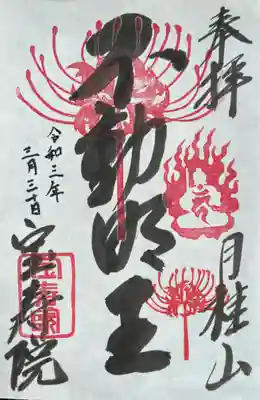 奉拝
月桂山
不動明王
令和三年
三月三十日
院